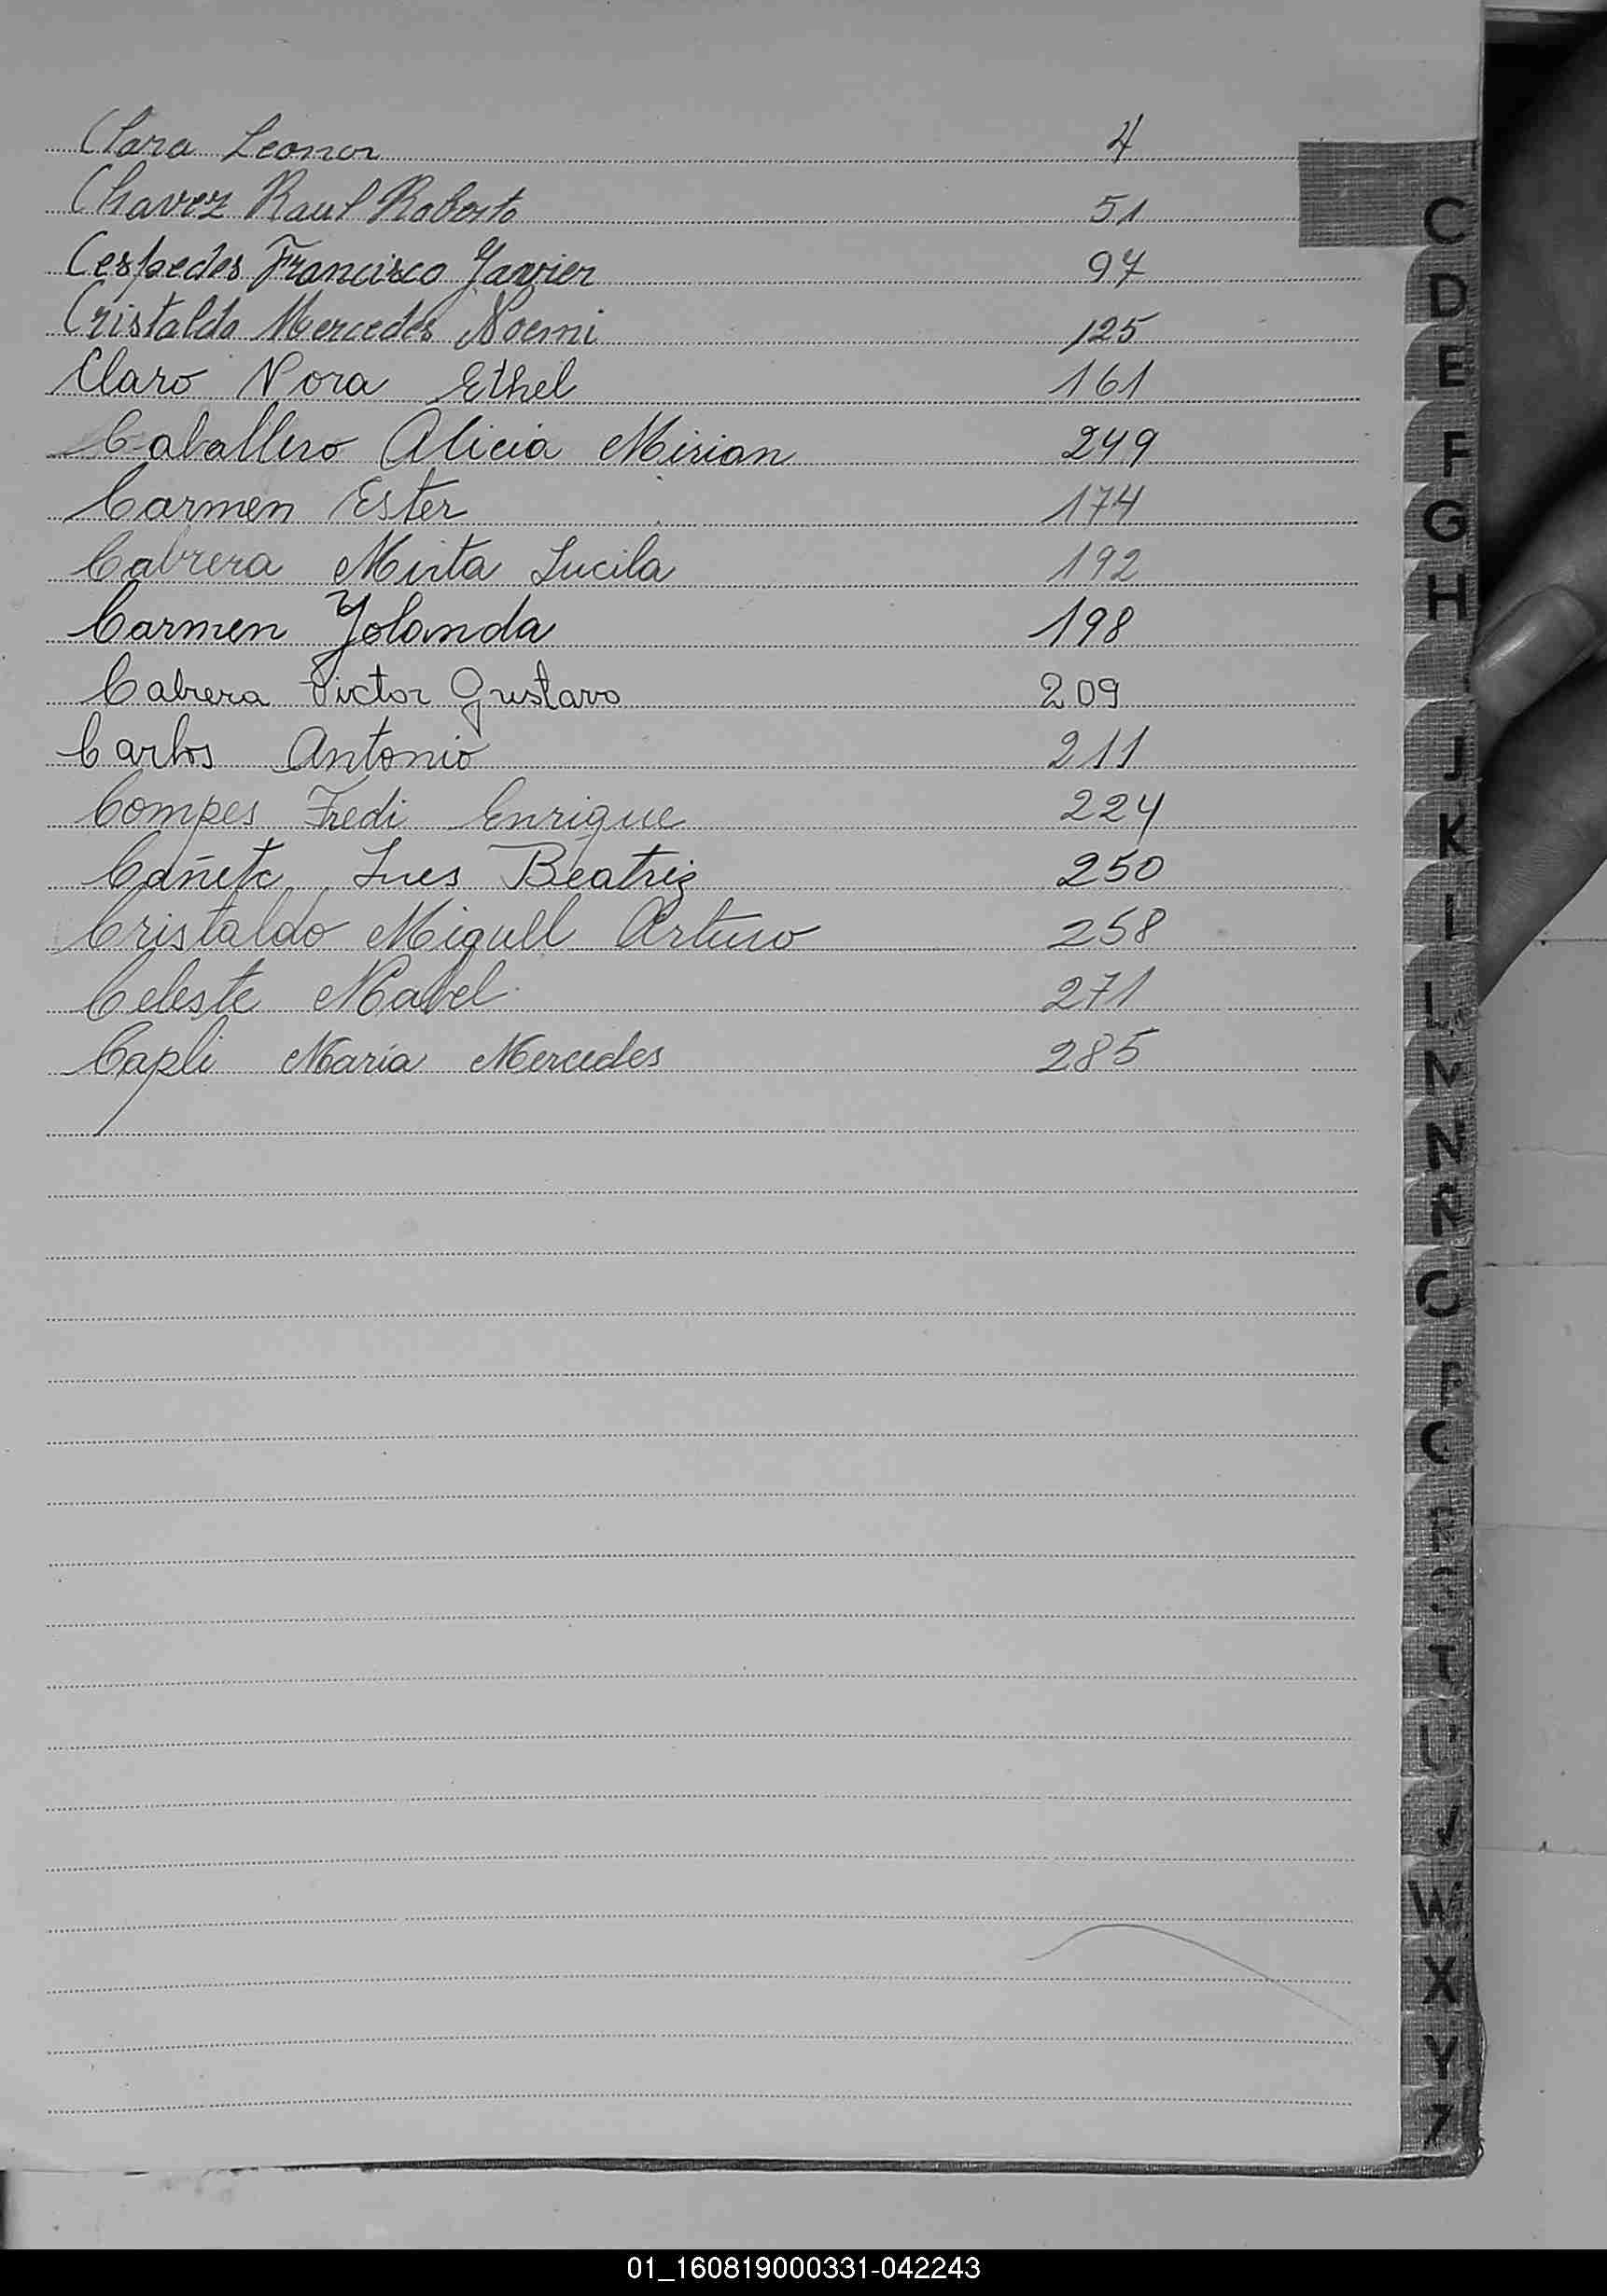 Clara Leonor 4
Chavez Raul Roberto 51
Cespedes Francisco Javier 97
Cristaldo Mercedes Noemi 125
Claro Nora Ethel 161
Caballero Alicia Mirian 249
Carmen Ester 174
Cabrera Mirta Lucila 192
Carmen Yolanda 198
Cabrera Victor Gustavo 209
Carlos Antonio 211
Compes Fredi Enrique 224
Cañete Ines Beatriz 250
Cristaldo Miguel Arturo 258
Celeste Mabel 271
Capli María Mercedes 285
C
D
E
F
G
H
J
K
L
N
X
Y
Z
01_160819000331-042243